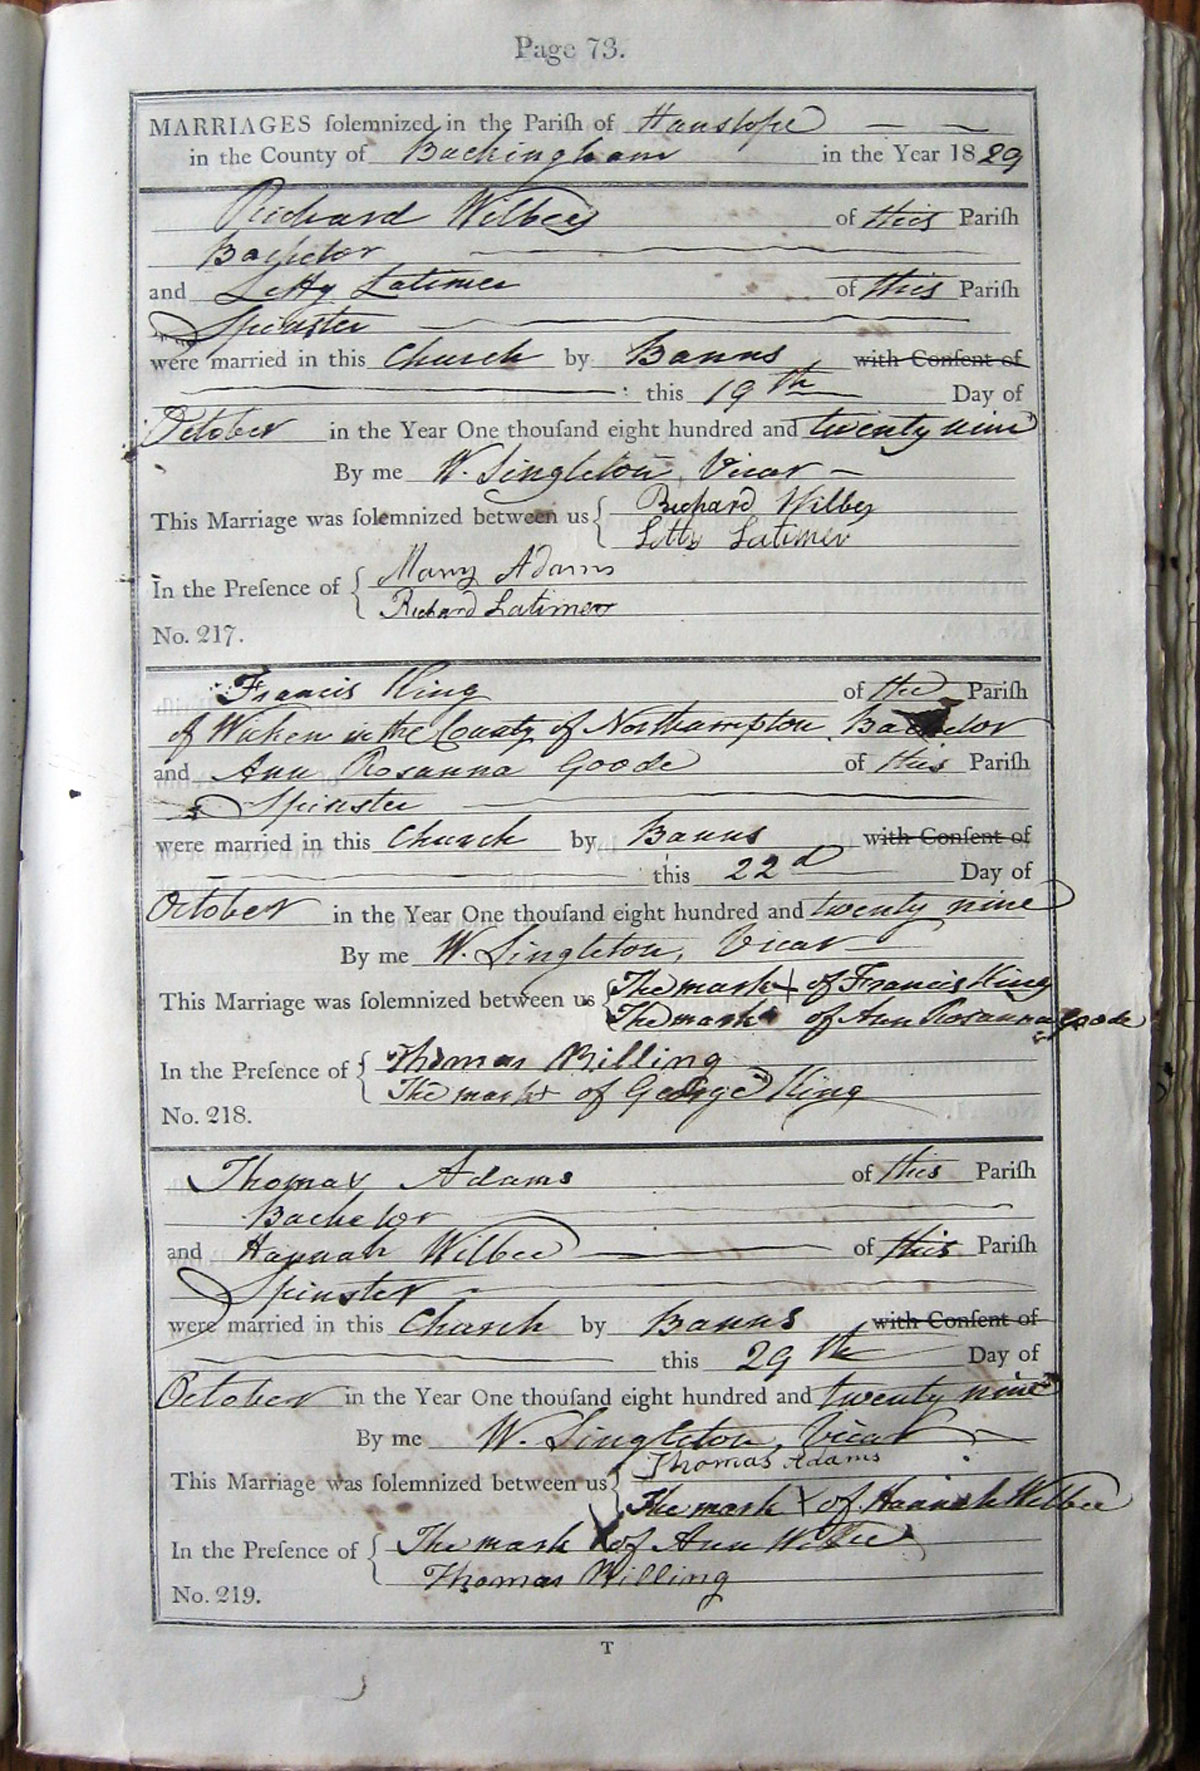 Page 73.
MARRIAGES ſolemnized in the Pariſh of Hanslope
in the County of Buckingham in the Year 1829
Richard Wilbey of this Pariſh
Bachelor
and Letty Latimer of this Pariſh
Spinster
were married in this Church by Banns with Conſent of
this 19th Day of
October in the Year One thouſand eight hundred and twenty nine
By me W. Singleton, Vicar
This Marriage was ſolemnized between us { Richard Wilbey
Letty Latimer
In the Preſence of { Mary Adams
Richard Latimer
No. 217.
Francis King of the Pariſh
of Wicken in the County of Northampton Bachelor
and Ann Rosanna Goode of this Pariſh
Spinster
were married in this Church by Banns with Conſent of
this 22d Day of
October in the Year One thouſand eight hundred and twenty nine
By me W. Singleton, Vicar
This Marriage was ſolemnized between us { The mark + of Francis King
The mark of Ann Rosanna Goode
In the Preſence of { Thomas Billing
The mark + of George King
No. 218.
Thomas Adams of this Pariſh
Bachelor
and Hannah Wilbee of this Pariſh
Spinster
were married in this Church by Banns with Conſent of
this 29th Day of
October in the Year One thouſand eight hundred and twenty nine
By me W. Singleton, Vicar
This Marriage was ſolemnized between us { Thomas Adams
The mark X of Hannah Wilbee
In the Preſence of { The mark X of Ann Wilbee
Thomas Billing
No. 219.
T